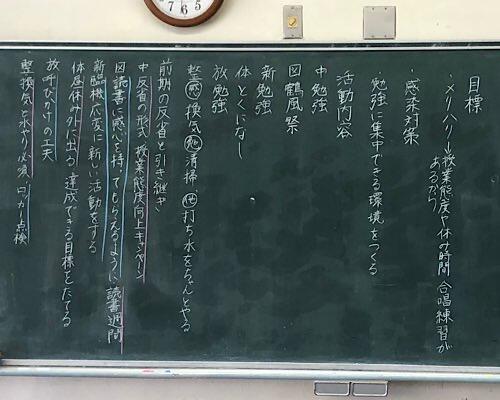 目標
・メリハリ→授業態度や休み時間 合唱練習が
あるから
・感染対策
・勉強に集中できる環境をつくる
活動内容
中 勉強
図 鶴風祭
新 勉強
体 とくになし
放 勉強
整 感 換気 清掃、他 打ち水をちゃんとやる
前期の反省と引き継ぎ
中 反省の形式 授業態度向上キャンペーン
図 読書に感心を持ってもらえるように 読書週間
新 臨機応変に新しい活動をする
体 昼休み外に出る 達成できる目標をたてる
放 呼びかけの工夫
整 換気 とかやり必須 ロッカー点検
12
7
6
5